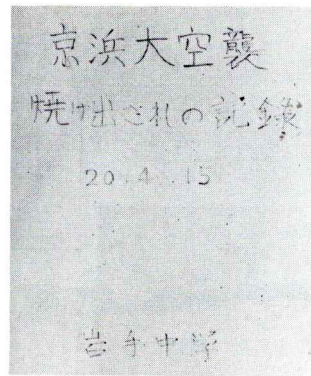 京浜大空襲
焼け出されの記録
20.4.15
岩手中学